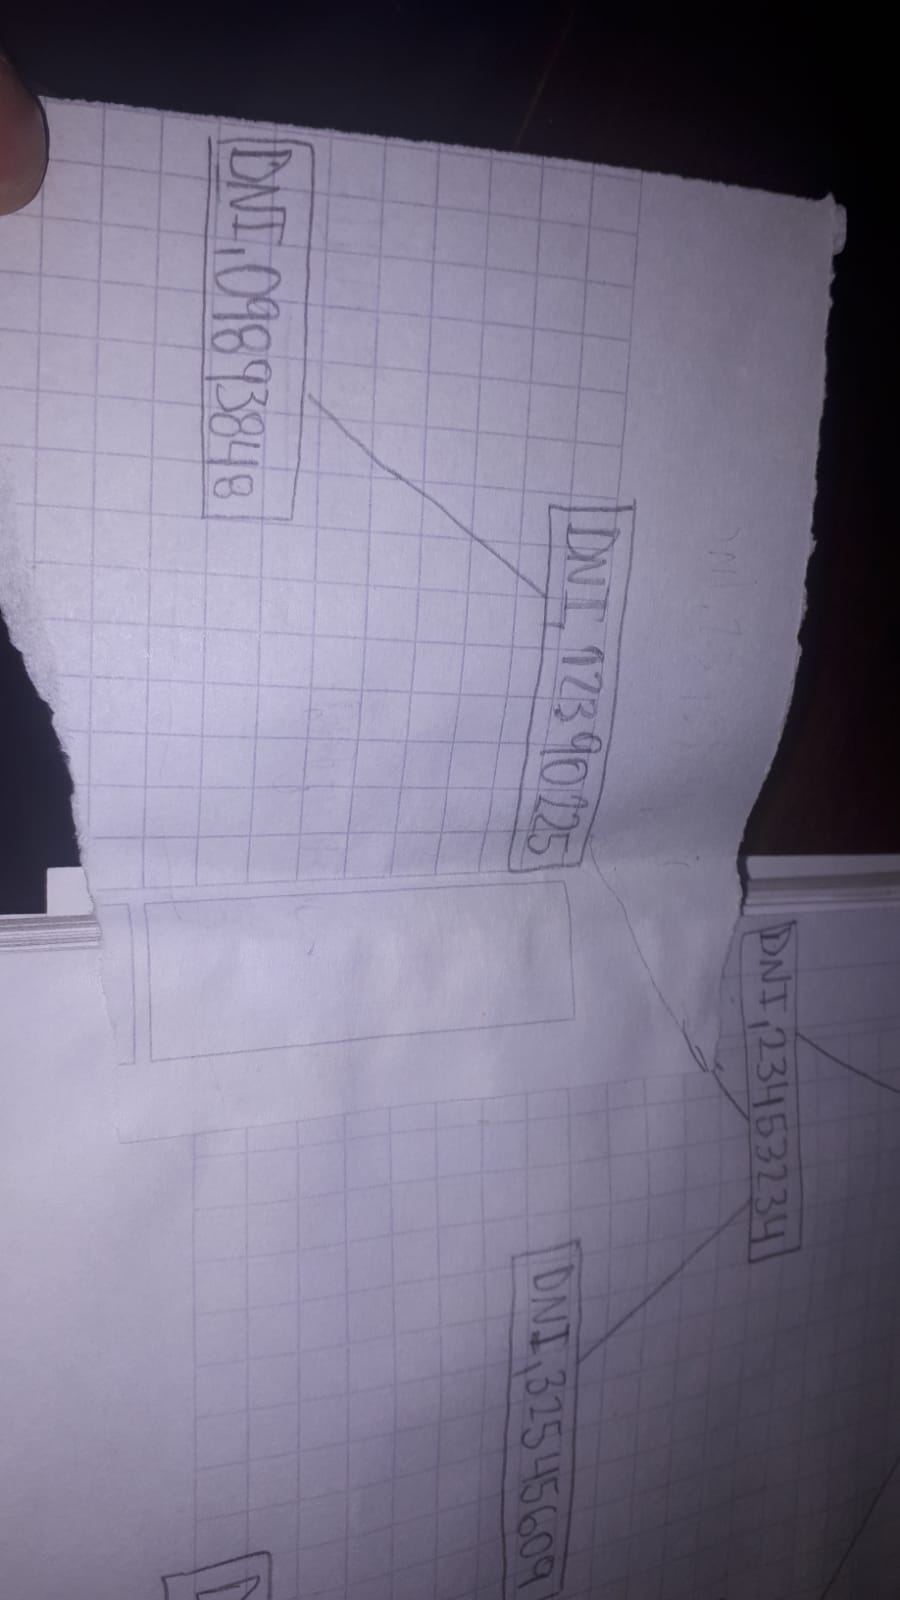 DNI,23453234
DNI,12390225
DNI,32545609
DNI,09893848